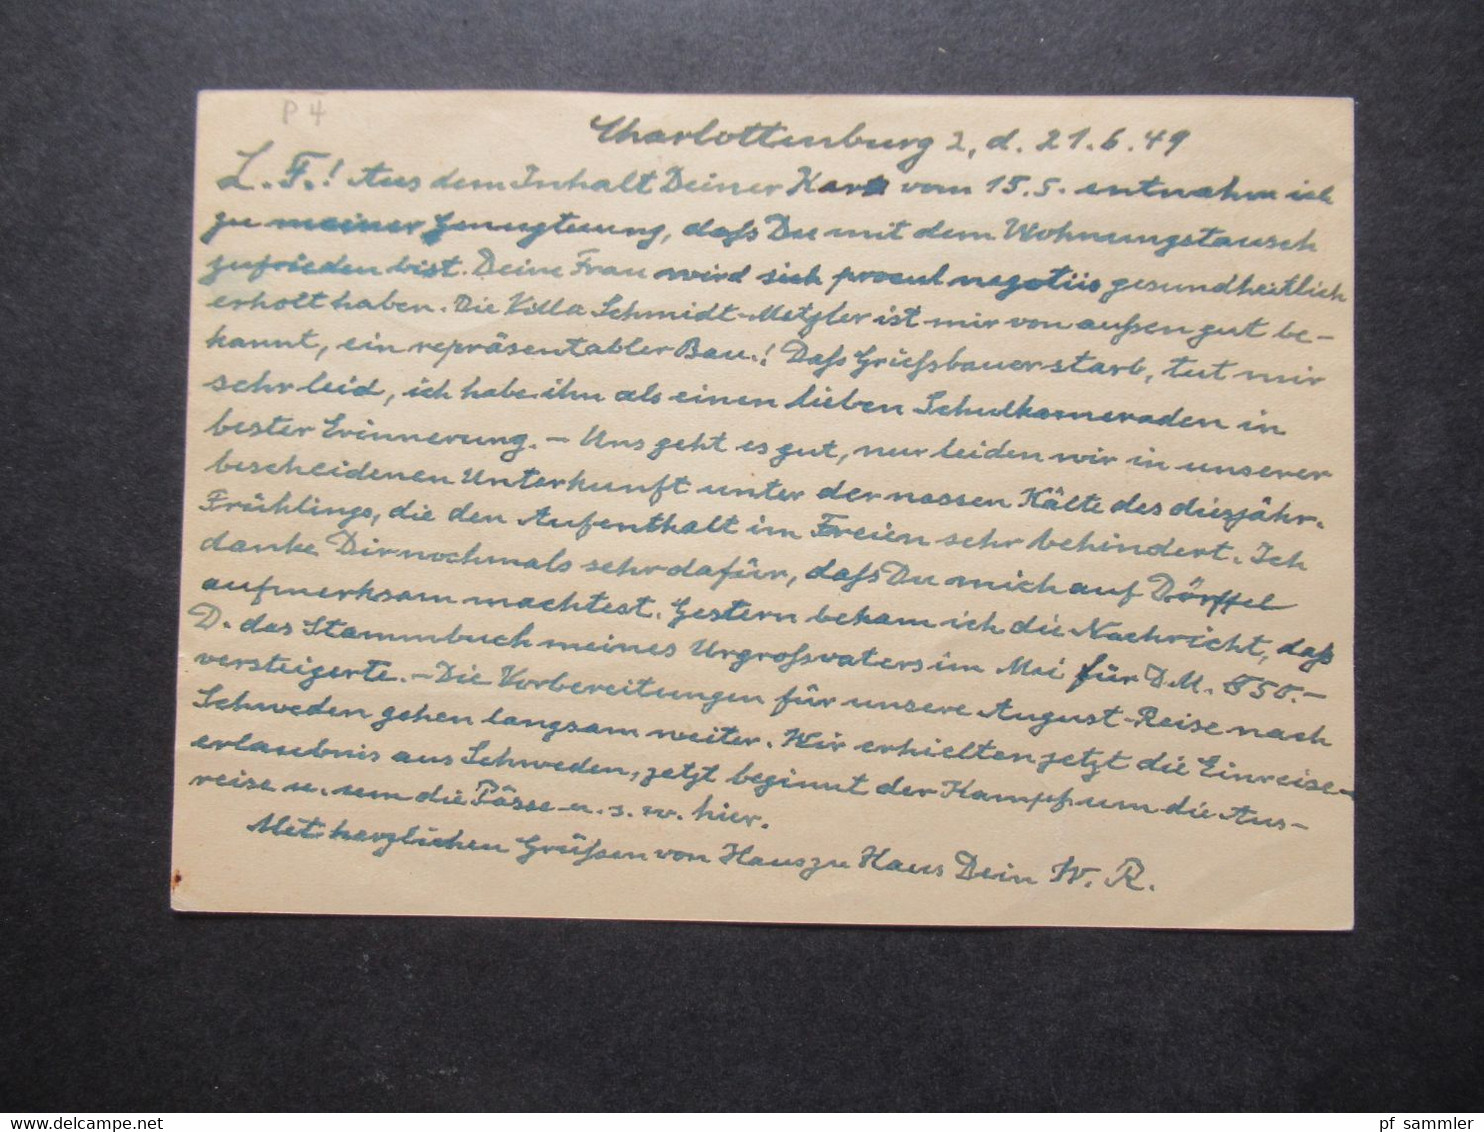 P 4
Charlottenburg 2, d. 21.6.49
L. F.! Aus dem Inhalt Deiner Karte vom 15.5. entnahm ich
zu meiner Genugtuung, daß Du mit dem Wohnungstausch
zufrieden bist. Deine Frau wird sich procul negotiis gesundheitlich
erholt haben. Die Villa Schmidt-Metzler ist mir von außen gut be-
kannt, ein repräsentabler Bau.! Daß Grießbauer starb, tut mir
sehr leid, ich habe ihn als einen lieben Schulkameraden in
bester Erinnerung. – Uns geht es gut, nur leiden wir in unserer
bescheidenen Unterkunft unter der nassen Kälte des diesjähr.
Frühlings, die den Aufenthalt im Freien sehr behindert. Ich
danke Dir nochmals sehr dafür, daß Du mich auf Dörffel
aufmerksam machtest. Gestern bekam ich die Nachricht, daß
D. das Stammbuch meines Urgroßvaters im Mai für D.M. 550.–
versteigerte. – Die Vorbereitungen für unsere August-Reise nach
Schweden gehen langsam weiter. Wir erhielten jetzt die Einreise-
erlaubnis aus Schweden, jetzt beginnt der Kampf um die Aus-
reise u. um die Pässe u. s. w. hier.
Mit herzlichen Grüßen von Haus zu Haus Dein W. R.
www.delcampe.net
pf_sammler